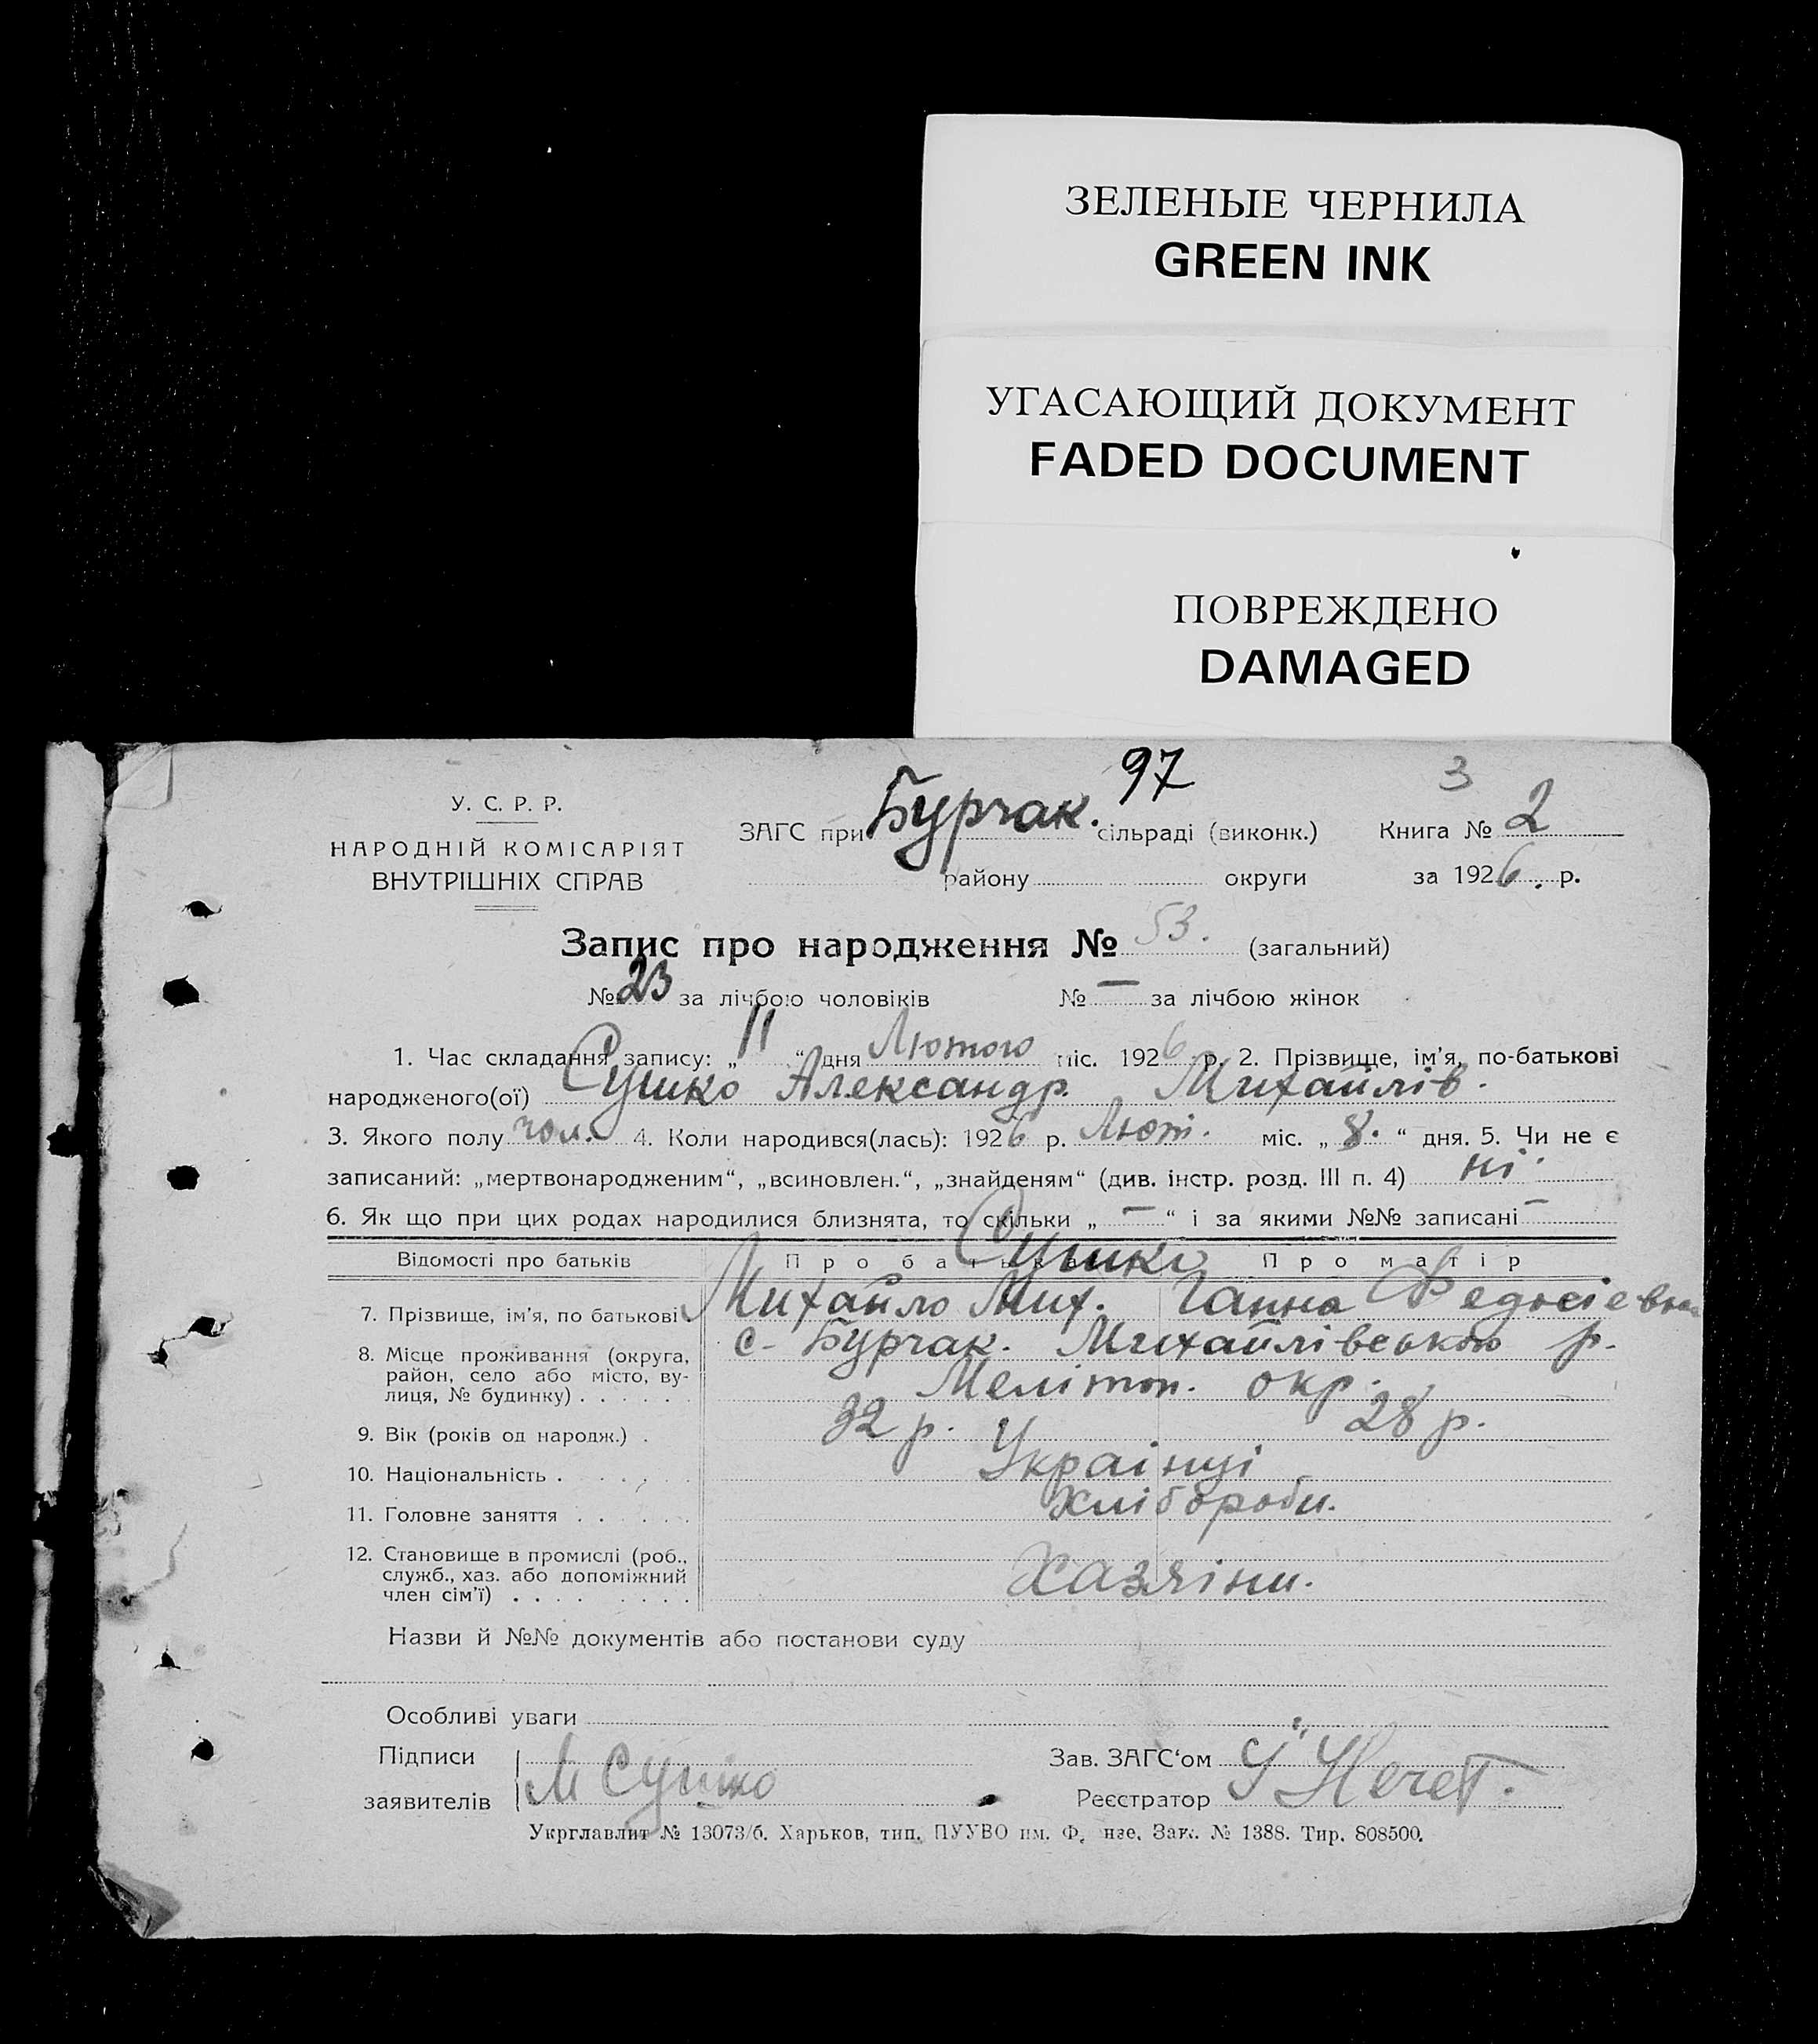 ЗЕЛЕНЫЕ ЧЕРНИЛА
GREEN INK
УГАСАЮЩИЙ ДОКУМЕНТ
FADED DOCUMENT
ПОВРЕЖДЕНО
DAMAGED
97
3
У. С. Р. Р.
НАРОДНІЙ КОМІСАРІЯТ
ВНУТРІШНІХ СПРАВ
ЗАГС при Бурчак. сільраді (виконк.) Книга № 2
району округи за 1926 р.
Запис про народження № 53. (загальний)
№ 23 за лічбою чоловіків № — за лічбою жінок
1. Час складання запису: „ 11 “ дня Лютого міс. 1926 р. 2. Прізвище, ім’я, по-батькові
народженого(ої) Сушко Александр. Михайлів.
3. Якого полу чол. 4. Коли народився(лась): 1926 р. Лют. міс. „ 8. “ дня. 5. Чи не є
записаний: „мертвонародженим“, „всиновлен.“, „знайденям“ (див. інстр. розд. III п. 4) ні.
6. Як що при цих родах народилися близнята, то скільки „ — “ і за якими №№ записані —
Відомості про батьків Про батька Про матір
Сушко
7. Прізвище, ім’я, по батькові Михайло Мих. Ганна Федосіевна
8. Місце проживання (округа, с. Бурчак. Михайлівською р.
район, село або місто, ву-
лиця, № будинку) . . . . . . Мелітоп. окр.
9. Вік (років од народж.) . 32 р. 28 р.
10. Національність . . . . . Украінці
11. Головне заняття . . . . . . Хлібороби.
12. Становище в промислі (роб.,
служб., хаз. або допоміжний Хазяіни.
член сім’ї) . . . . . . . .
Назви й №№ документів або постанови суду
Особливі уваги
Підписи Зав. ЗАГС‘ом
заявителів М Сушко Реєстратор
Укрглавлит № 13073/б. Харьков, тип. ПУУВО им. Ф нзе. Зак. № 1388. Тир. 808500.